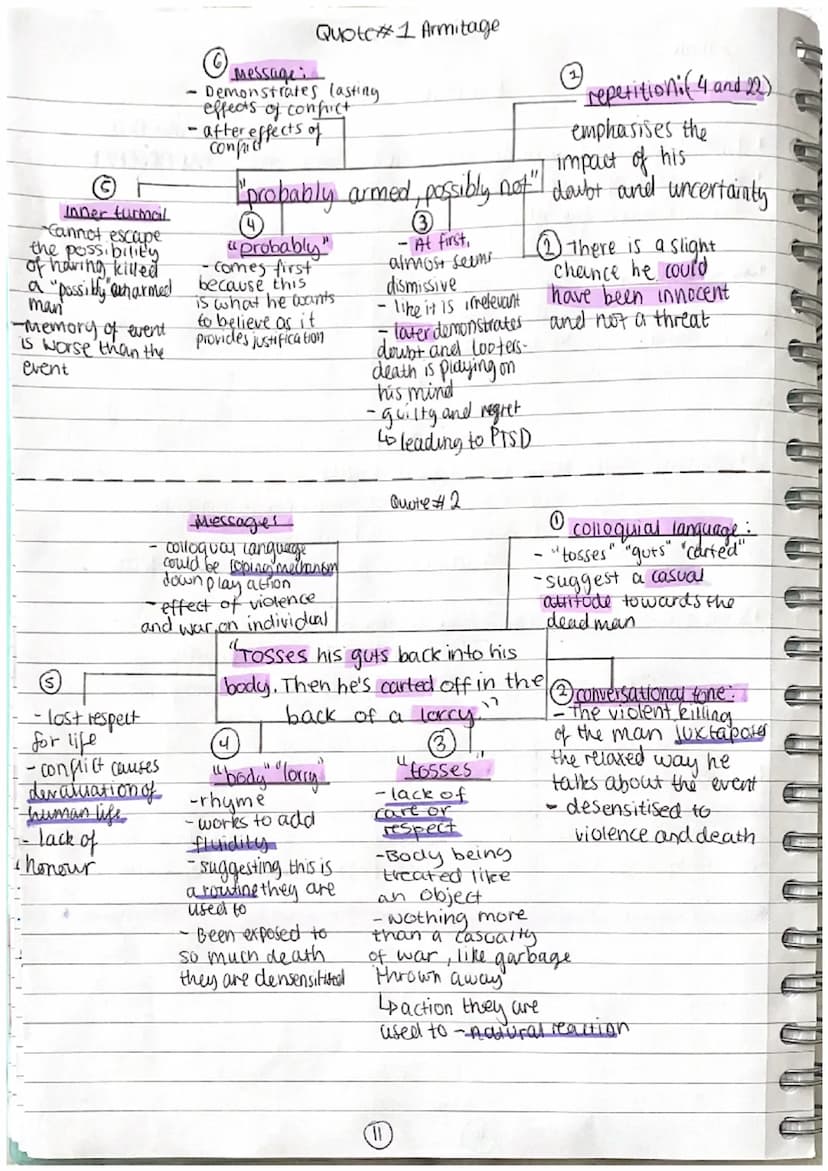 Quote#1 Armitage
6
Message:
- Demonstrates lasting
effects of conflict
- after effects of
conflict
1
repetition:(4 and 22)
emphasises the
impact of his
doubt and uncertainty
"probably armed, possibly not"
5
Inner turmoil
- Cannot escape
the possibility
of having killed
a "possibly" unarmed
man
- Memory of event
is worse than the
event
4
"probably"
- comes first
because this
is what he wants
to believe as it
provides justification
3
- At first,
almost seems
dismissive
- like it is irrelevant
- later demonstrates
doubt and looters-
death is playing on
his mind
- guilty and regret
↳ leading to PTSD
2 There is a slight
chance he could
have been innocent
and not a threat
Quote#2
Messages
- colloqual language
could be coping mechanism
down play action
- effect of violence
and war on individual
1 colloquial language:
- "tosses" "guts" "carted"
- suggest a casual
attitude towards the
dead man
"Tosses his guts back into his
body. Then he's carted off in the
back of a lorry."
5
- lost respect
for life
- conflict causes
devaluation of
human life
- lack of
honour
4
"body" "lorry"
- rhyme
- works to add
fluidity
- suggesting this is
a routine they are
used to
- Been exposed to
so much death
they are densensitised
3
"tosses"
- lack of
care or
respect
- Body being
treated like
an object
- nothing more
than a casualty
of war, like garbage
thrown away
↳ action they are
used to - natural reaction
2 conversational tone:
- The violent killing
of the man juxtaposes
the relaxed way he
talks about the event
- desensitised to
violence and death
11